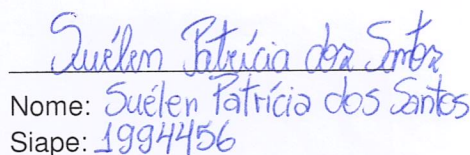 Suélen Patrícia dos Santos
Nome: Suélen Patrícia dos Santos
Siape: 1994456